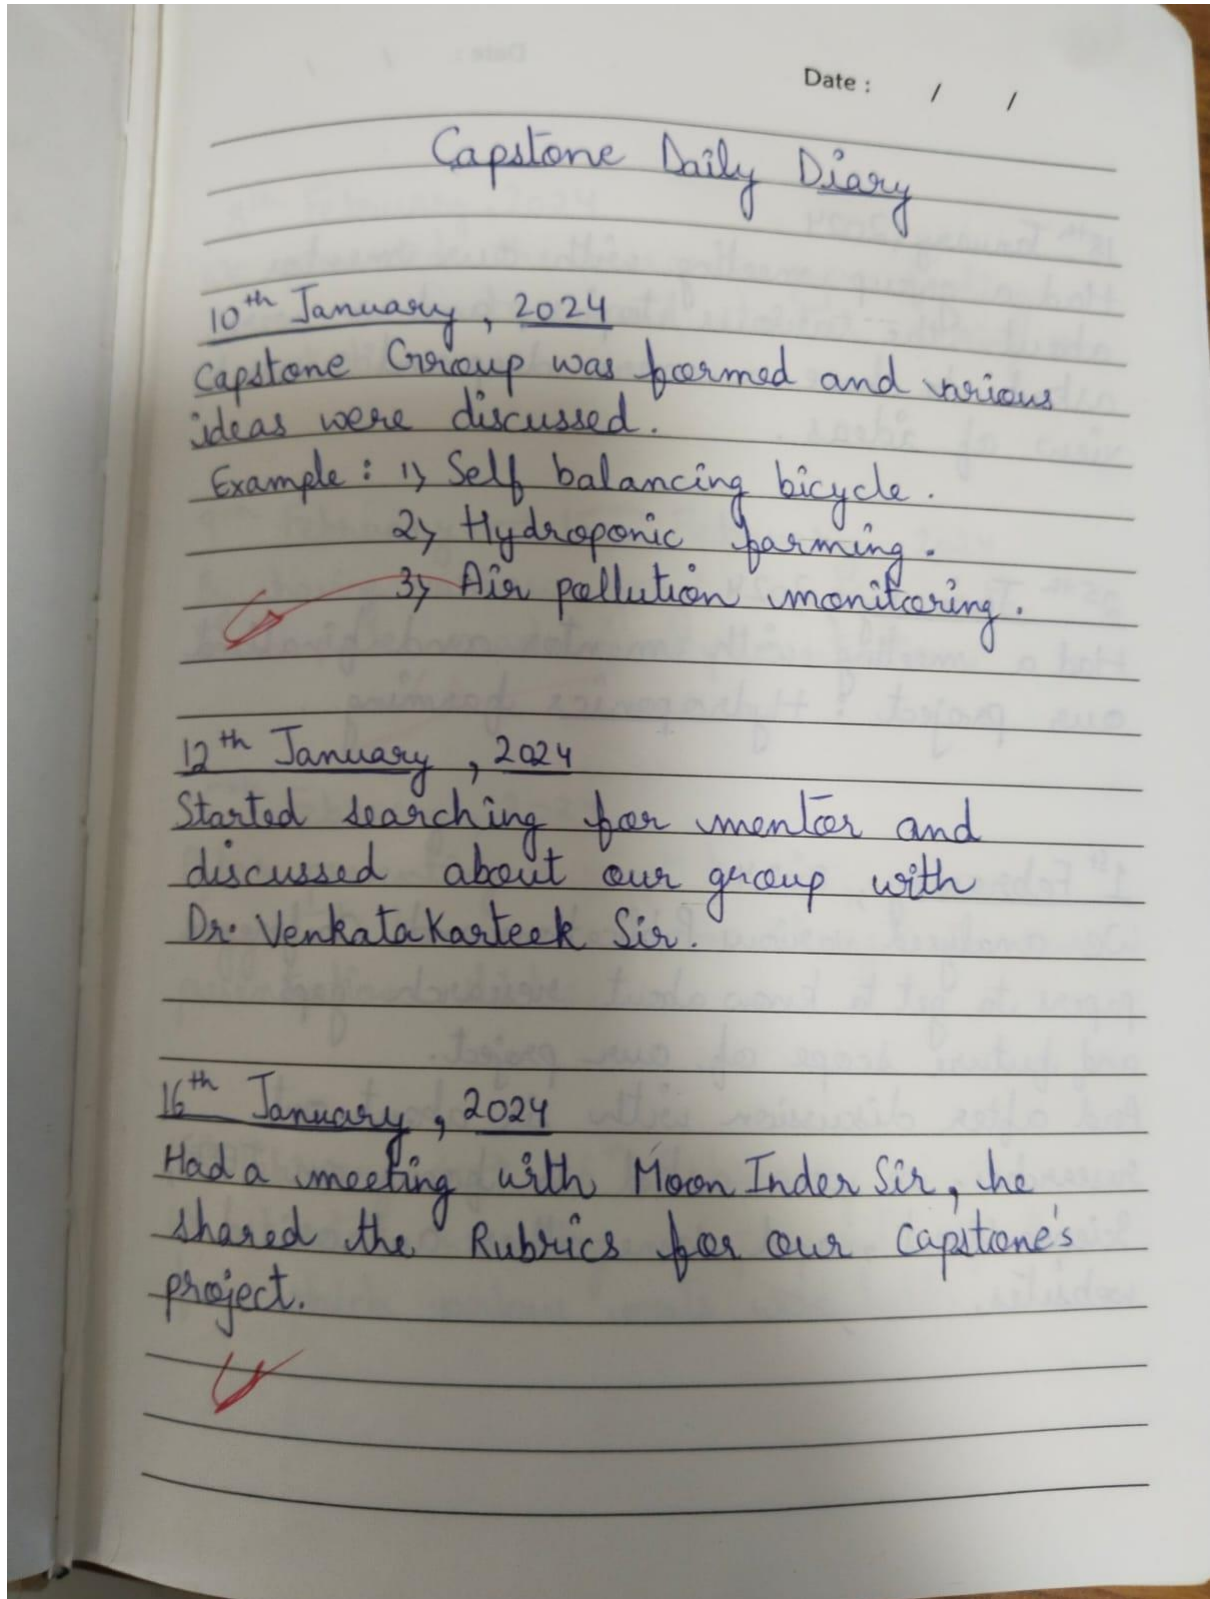 Date : / /
Capstone Daily Diary
10th January, 2024
Capstone Group was formed and various
ideas were discussed.
Example : 1) Self balancing bicycle.
2) Hydroponic farming.
3) Air pollution monitoring.
12th January, 2024
Started searching for mentor and
discussed about our group with
Dr. Venkata Karteek Sir.
16th January, 2024
Had a meeting with Moon Inder Sir, he
shared the Rubrics for our Capstone's
project.